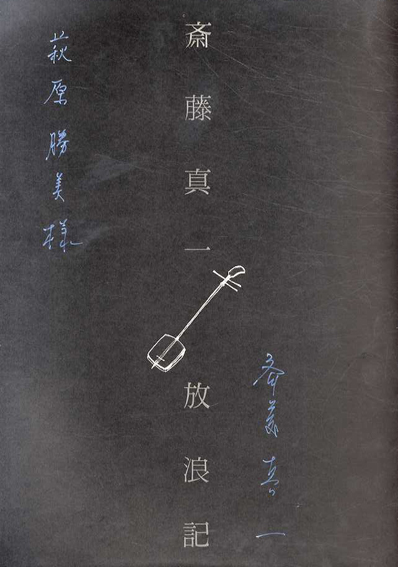 斎藤真一
放浪記
萩原勝美様
斎藤真一